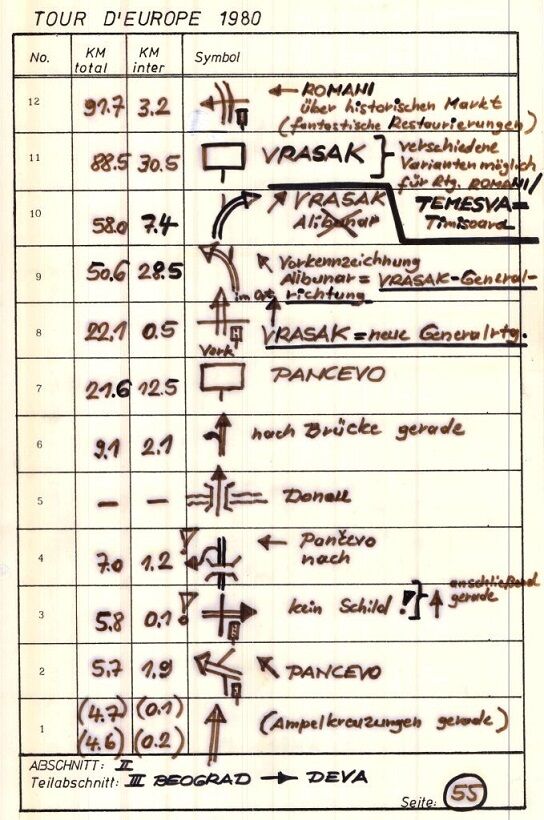 TOUR D'EUROPE 1980
No. KM total KM inter Symbol
12 91.7 3.2 ← ROMANI
über historischen Markt
(fantastische Restaurierungen)
11 88.5 30.5 VRASAK } verschiedene
Varianten möglich
für Rtg. ROMANI/
TEMESVA=
Timisoara
10 58.0 7.4 VRASAK
Alibunar
9 50.6 28.5 Vorkennzeichnung
Alibunar = VRASAK-General-
im Ort richtung
8 22.1 0.5 VRASAK = neue Generalrtg.
Vork
7 21.6 12.5 PANCEVO
6 9.1 2.1 nach Brücke gerade
5 — — Donau
4 7.0 1.2 ! ← Pančevo
nach
3 5.8 0.1 ! kein Schild ! } ↑ anschließend
gerade
2 5.7 1.9 PANCEVO
1 (4.7) (0.1) (Ampelkreuzungen gerade)
(4.6) (0.2)
ABSCHNITT: II
Teilabschnitt: III BEOGRAD → DEVA
Seite: 55